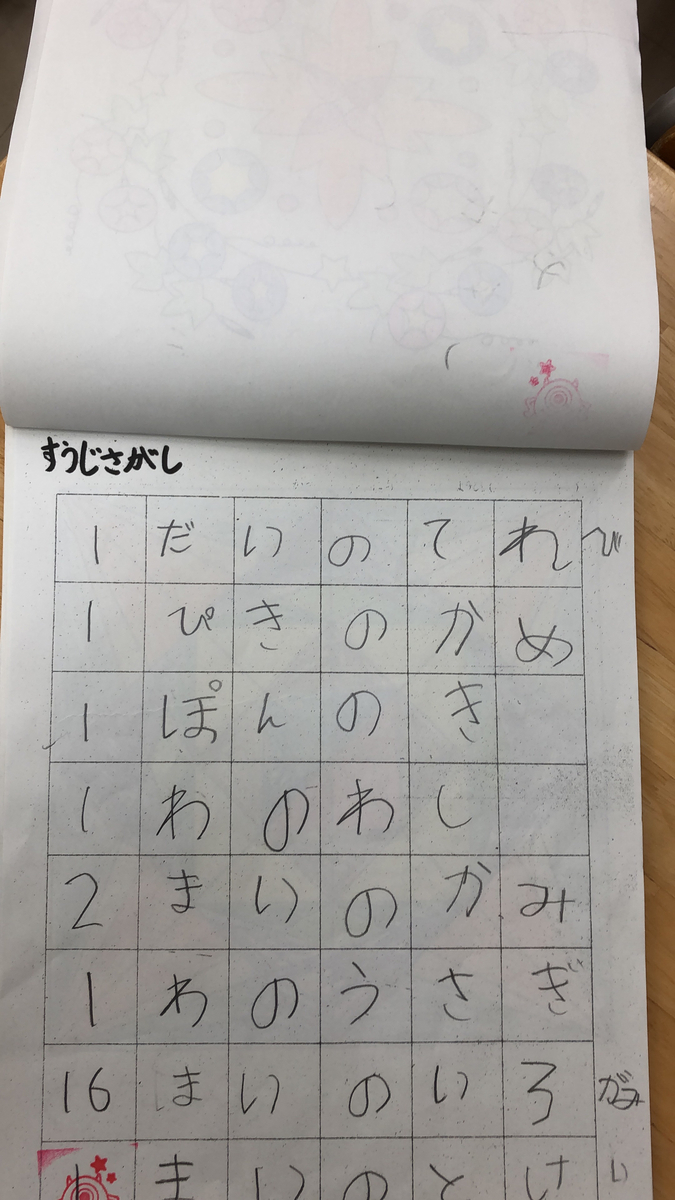 すうじさがし
1だいのてれび
1ぴきのかめ
1ぽんのき
1わのわし
2まいのかみ
1わのうさぎ
16まいのいろがみ
1まいのとけい